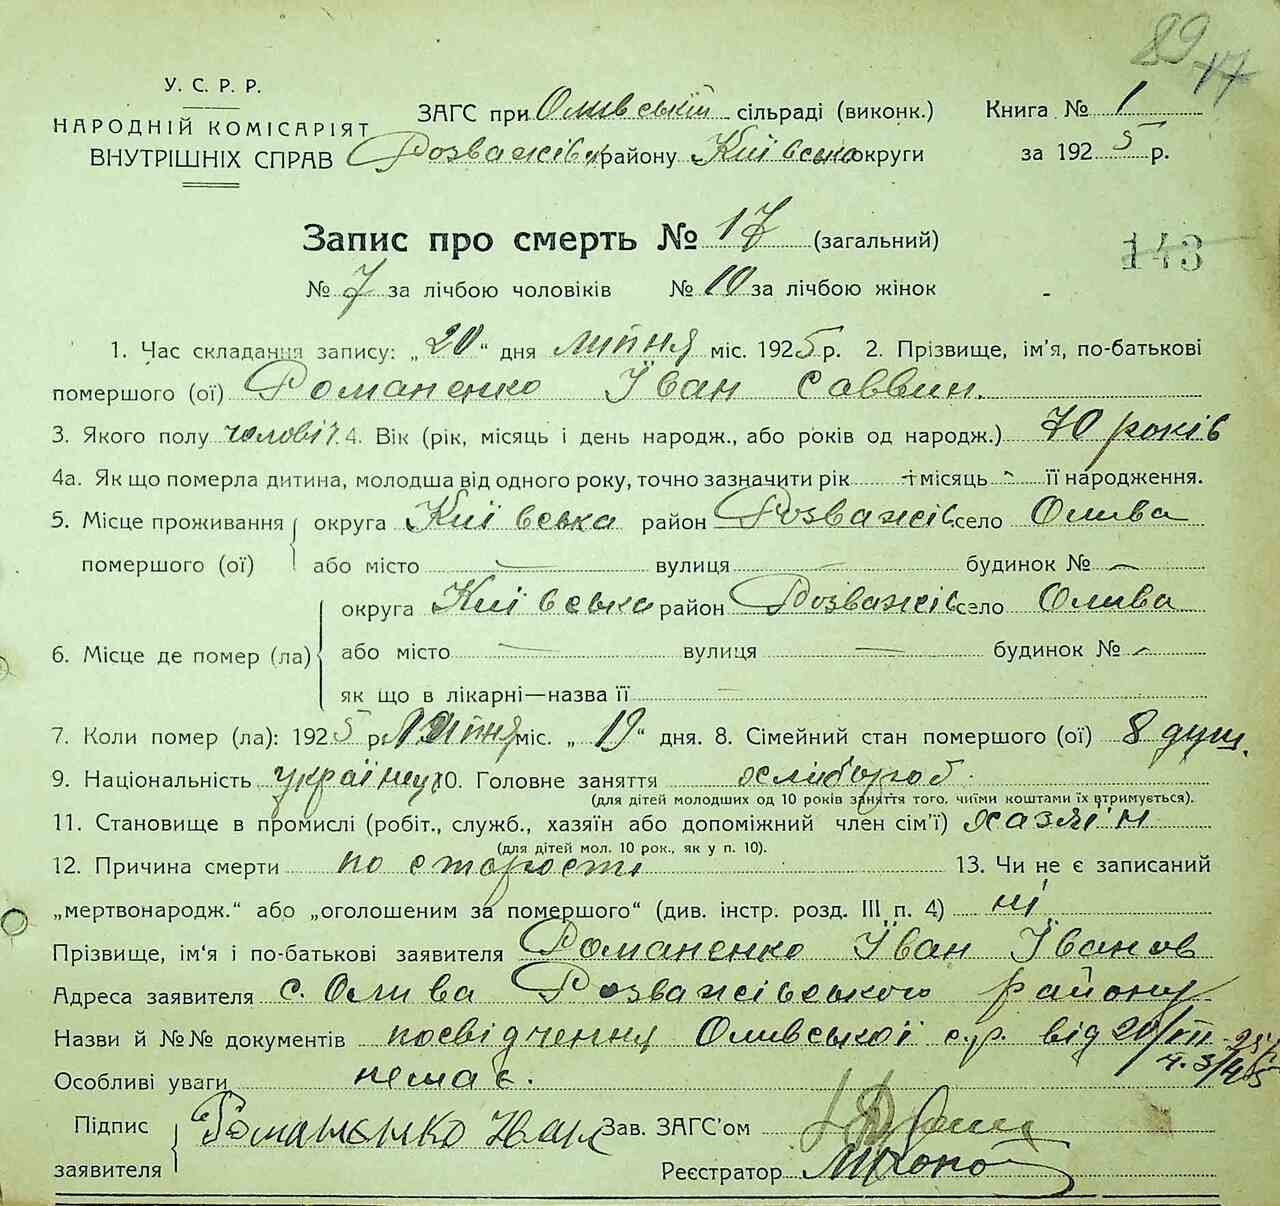 89
17
У. С. Р. Р.
НАРОДНІЙ КОМІСАРІЯТ
ВНУТРІШНІХ СПРАВ
ЗАГС при Оливській сільраді (виконк.)
Розважівськ району Київсько округи
Книга № 1
за 1925 р.
Запис про смерть № 17 (загальний)
143
№ 7 за лічбою чоловіків № 10 за лічбою жінок
1. Час складання запису: „20“ дня липня міс. 1925 р. 2. Прізвище, ім’я, по-батькові
помершого (ої) Романенко Їван Саввин.
3. Якого полу чоловіч. 4. Вік (рік, місяць і день народж., або років од народж.) 70 років
4а. Як що померла дитина, молодша від одного року, точно зазначити рік — і місяць — її народження.
5. Місце проживання помершого (ої) округа Київська район Розважів село Олива
або місто — вулиця — будинок № —
6. Місце де помер (ла) округа Київська район Розважів село Олива
або місто — вулиця — будинок № —
як що в лікарні—назва її —
7. Коли помер (ла): 1925 р. липня міс. „19“ дня. 8. Сімейний стан помершого (ої) 8 душ.
9. Національність україн 10. Головне заняття хлибороб.
(для дітей молодших од 10 років заняття того, чиїми коштами їх втримується).
11. Становище в промислі (робіт., служб., хазяїн або допоміжний член сім’ї) хазяїн
(для дітей мол. 10 рок., як у п. 10).
12. Причина смерти по старости 13. Чи не є записаний
„мертвонародж.“ або „оголошеним за помершого“ (див. інстр. розд. III п. 4) ні
Прізвище, ім‘я і по-батькові заявителя Романенко Їван Їванов
Адреса заявителя с. Олива Розважівського району
Назви й №№ документів посвідчення Оливської с.р. від 20/VII-25
ч. 3/45
Особливі уваги немає.
Підпис заявителя Романенко Иван Зав. ЗАГС’ом
Реєстратор